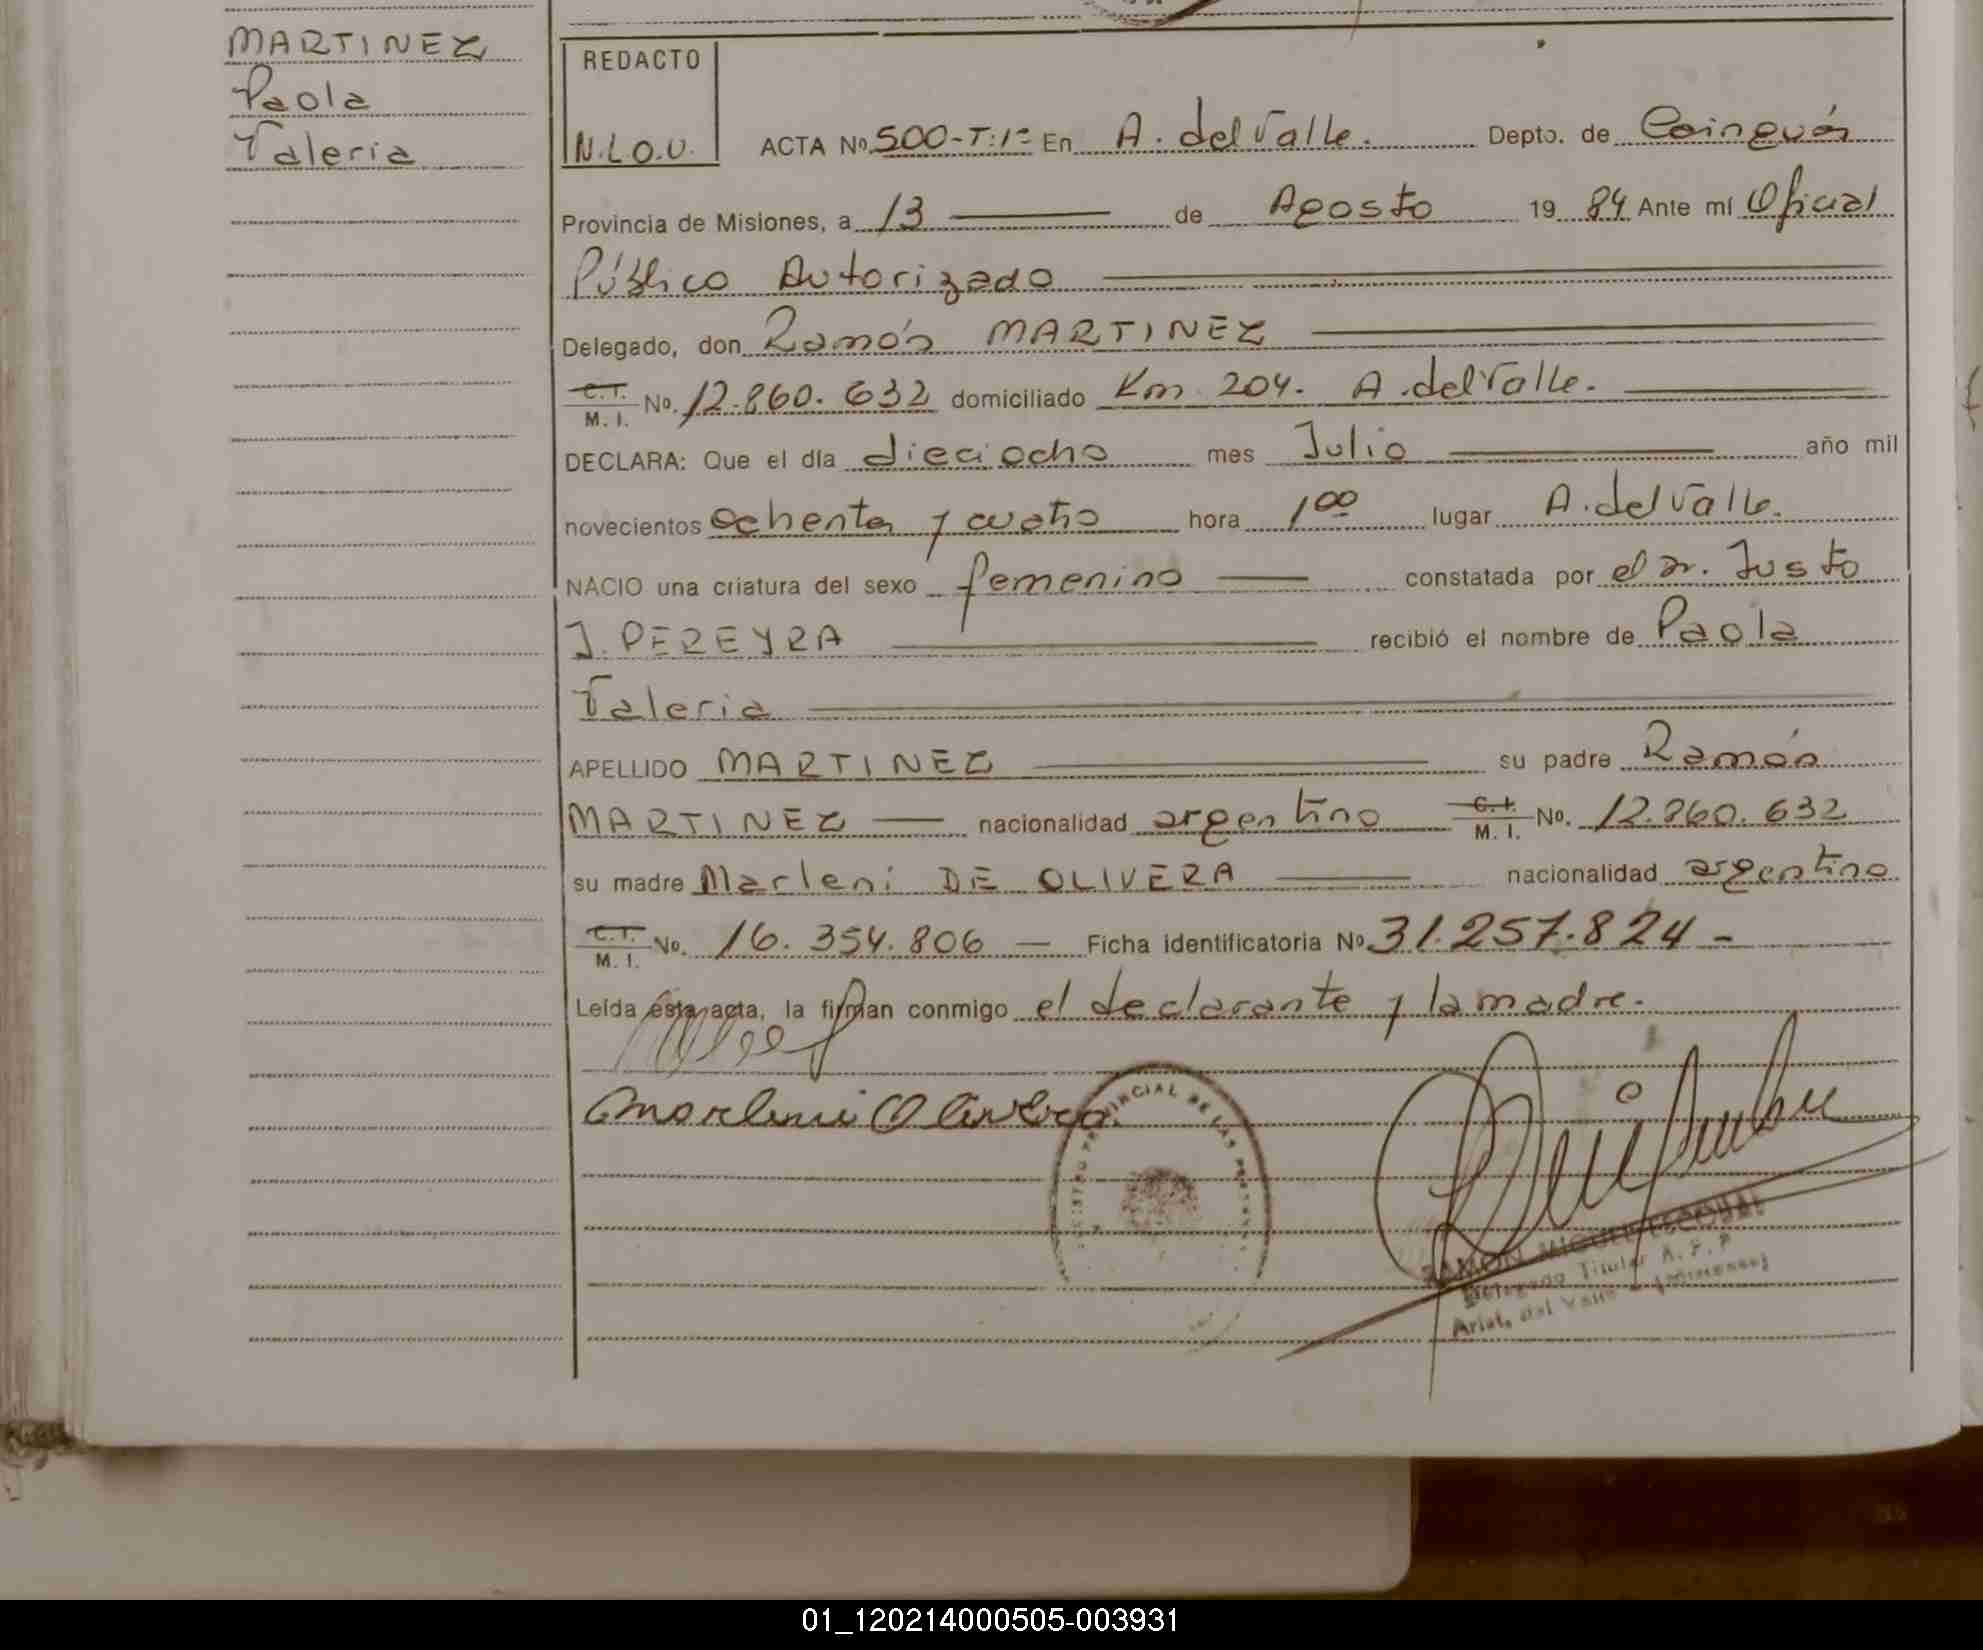 MARTINEZ
Paola
Valeria
REDACTO
N.L.O.U.
ACTA No. 500-T:1º En A. del Valle. Depto. de Cainguás
Provincia de Misiones, a 13 de Agosto 19 84 Ante mí Oficial
Público Autorizado
Delegado, don Ramón MARTINEZ
C.I. M. I. No. 12.860.632 domiciliado Km 204. A. del Valle.
DECLARA: Que el día dieciocho mes Julio año mil
novecientos ochenta y cuatro hora 1 00 lugar A. del Valle.
NACIO una criatura del sexo femenino constatada por el Dr. Justo
J. PEREYRA recibió el nombre de Paola
Valeria
APELLIDO MARTINEZ su padre Ramón
MARTINEZ nacionalidad argentino C.I. M. I. No. 12.860.632
su madre Marleni DE OLIVERA nacionalidad argentino
C.I. M. I. No. 16.354.806 Ficha identificatoria No 31.257.824 -
Leída esta acta, la firman conmigo el declarante y la madre.
Marleni Olivera
PROVINCIAL DE LAS
RAMON MIGUEL
Delegado Titular R. P. P.
Arist. del Valle (Misiones)
01_120214000505-003931